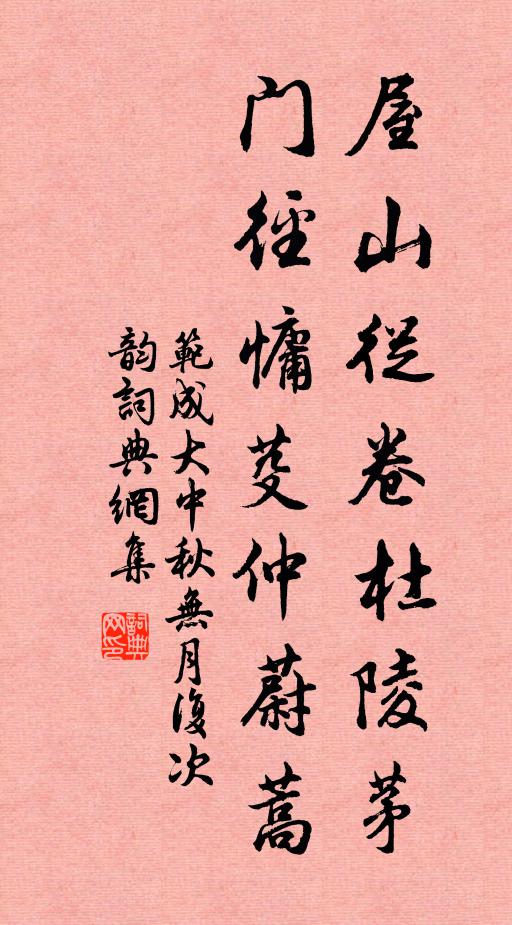 屋山從卷杜陵茅
門徑慵芟仲蔚蒿
範成大中秋無月復次
韵詞典網集
詞典
网印